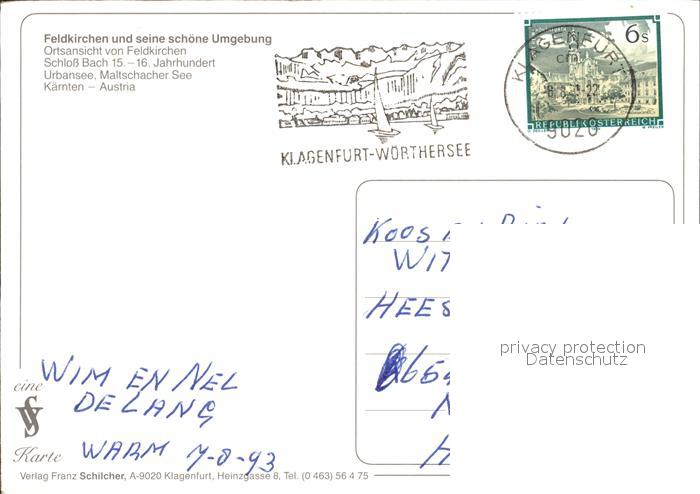 Feldkirchen und seine schöne Umgebung
Ortsansicht von Feldkirchen
Schloß Bach 15.–16. Jahrhundert
Urbansee, Maltschacher See
Kärnten – Austria
KLAGENFURT-WÖRTHERSEE
6s
KLAGENFURT
9020
REPUBLIK ÖSTERREICH
KOOS
WIT
HEES
privacy protection
Datenschutz
WIM EN NEL
DE LANG
WARM 7-8-93
eine
Karte
Verlag Franz Schilcher, A-9020 Klagenfurt, Heinzgasse 8, Tel. (0 463) 56 4 75